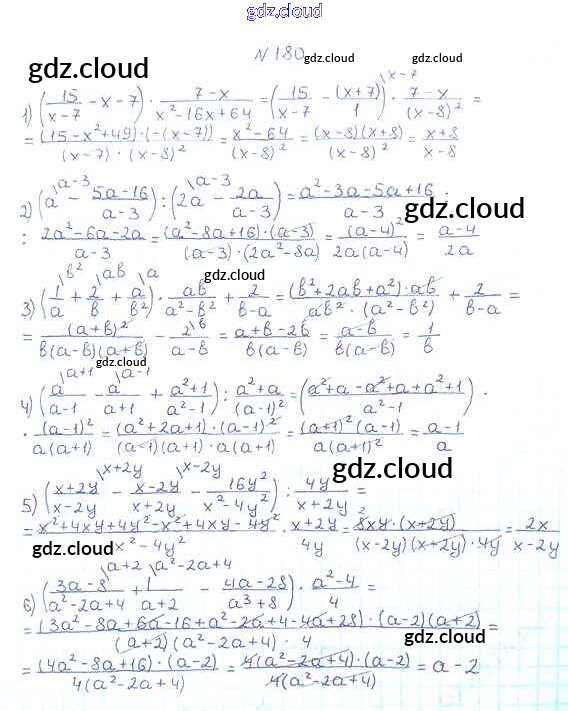 gdz.cloud
N 180 gdz.cloud gdz.cloud
gdz.cloud
1) (15/(x-7) - x - 7) · (7-x)/(x²-16x+64) = (15/(x-7) - (x+7)/1 \x-7) · (7-x)/(x-8)² =
= (15-x²+49)·(-(x-7))/((x-7)·(x-8)²) = (x²-64)/(x-8)² = (x-8)(x+8)/(x-8)² = (x+8)/(x-8)
2) (a \a-3 - (5a-16)/(a-3)) : (2a \a-3 - 2a/(a-3)) = (a²-3a-5a+16)/(a-3) :
gdz.cloud
: (2a²-6a-2a)/(a-3) = (a²-8a+16)·(a-3)/((a-3)·(2a²-8a)) = (a-4)²/(2a(a-4)) = (a-4)/(2a)
gdz.cloud
3) (1/a \в² + 2/в \aв + a/в² \a) · aв/(a²-в²) + 2/(в-a) = (в²+2aв+a²)·aв/(aв²·(a²-в²)) + 2/(в-a) =
= (a+в)²/(в(a-в)(a+в)) - 2/(a-в) \в = (a+в-2в)/(в(a-в)) = (a-в)/(в(a-в)) = 1/в
gdz.cloud
4) (a/(a-1) \a+1 - a/(a+1) \a-1 + (a²+1)/(a²-1)) : (a²+a)/(a-1)² = ((a²+a-a²+a+a²+1)/(a²-1)) ·
· (a-1)²/(a(a+1)) = (a²+2a+1)·(a-1)²/((a-1)(a+1)·a(a+1)) = (a+1)²(a-1)/(a(a+1)²) = (a-1)/a
gdz.cloud
5) ((x+2y)/(x-2y) \x+2y - (x-2y)/(x+2y) \x-2y - 16y²/(x²-4y²)) : 4y/(x+2y) =
= (x²+4xy+4y²-x²+4xy-4y²)/(x²-4y²) · (x+2y)/4y = 8xy·(x+2y)/((x-2y)(x+2y)·4y) = 2x/(x-2y)
gdz.cloud gdz.cloud
6) ((3a-8)/(a²-2a+4) \a+2 + 1/(a+2) \a²-2a+4 - (4a-28)/(a³+8)) · (a²-4)/4 =
= (3a²-8a+6a-16+a²-2a+4-4a+28)·(a-2)(a+2)/((a+2)(a²-2a+4)·4) =
gdz.cloud
= (4a²-8a+16)·(a-2)/(4(a²-2a+4)) = 4(a²-2a+4)·(a-2)/(4(a²-2a+4)) = a-2
gdz.cloud gdz.cloud